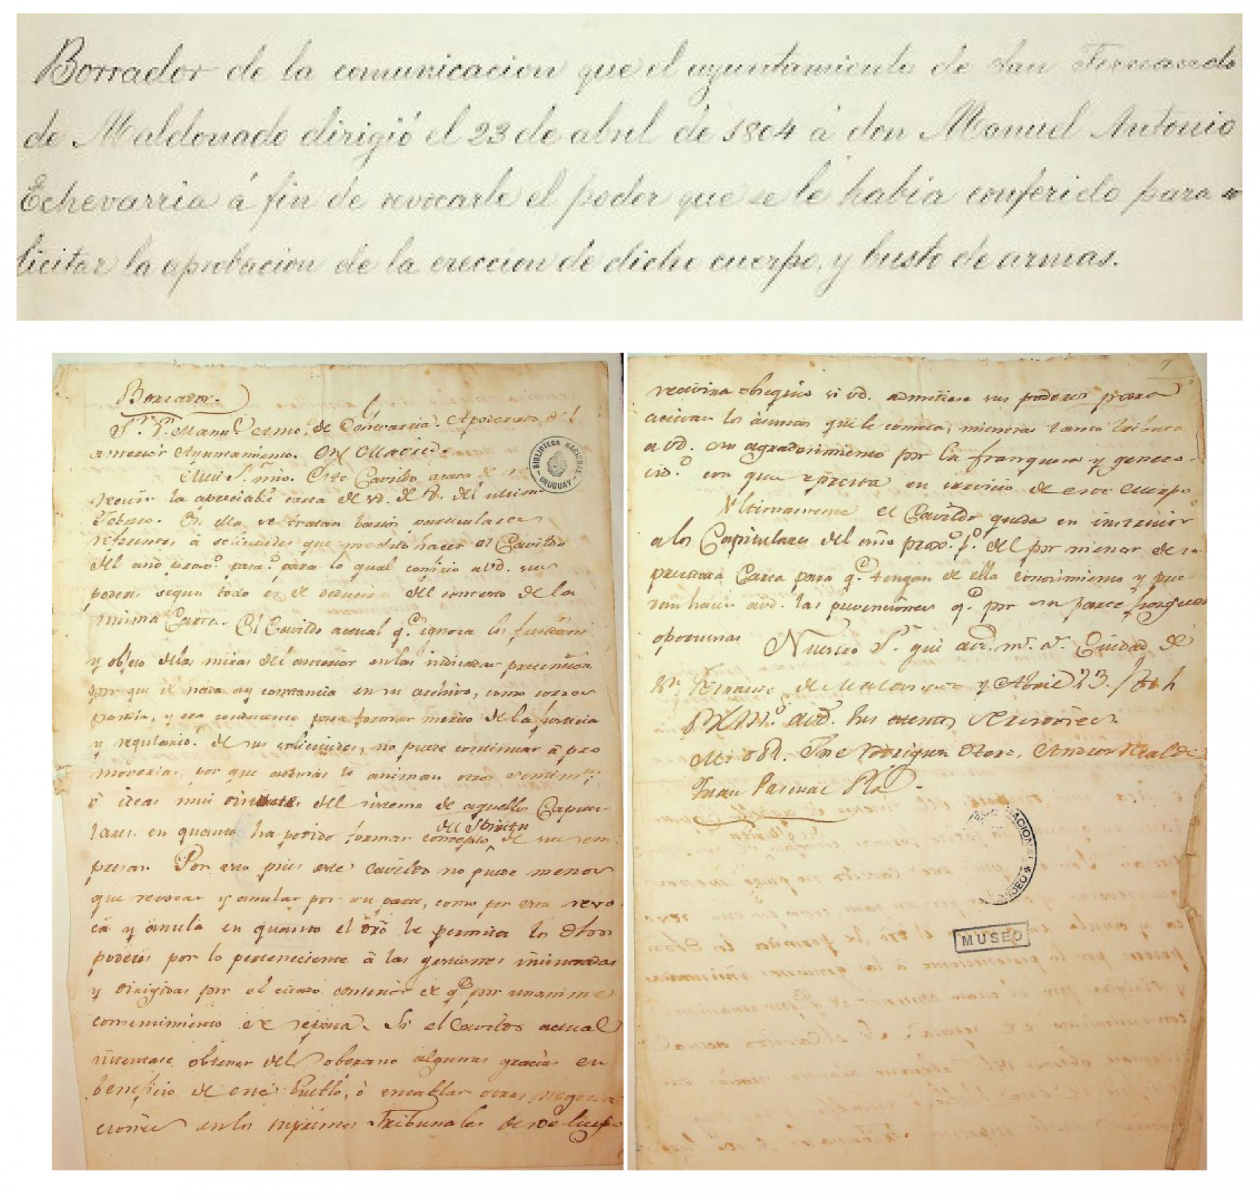 Borrador de la comunicacion que el ayuntamiento de San Fernando
de Maldonado dirigió el 23 de abril de 1804 á don Manuel Antonio
Echevarria á fin de revocarle el poder que se le habia conferido para so
licitar la aprobacion de la ereccion de dicho cuerpo, y busto de armas.
Borrador.
Sr. Dn. Manl. Antto. de Echevarria. Apoderado del
anterior Ayuntamiento. En Madrid.
Mui Sr. mio. Este Cavildo acava de re
cevir la apreciable carta de vd. de 8. del ultimo
Febrero. En ella se tratan barios particulares
referentes á solicitudes que hacer el Cavildo
del año para lo qual confirio á vd. sus
poderes segun todo es de del contexto de la
misma Carta. El Cavildo actual qe. ignora los fundam
y objeto de las miras del anterior en las indicadas pretenciones
por que de nada ay constancia en su archivo, como corres
pondia, y era conducente para formar merito de la justicia
y regularid. de sus solicitudes, no puede continuar á pro
moverlas, por que además lo animan otros
é ideas mui distintas del sistema de aquellos Capitu
lares en quanto ha podido formar concepto de sus em
del Sindico
presas. Por esto pues este Cavildo no puede menos
que revocar y anular por su parte, como por esta revo
ca y anula en quanto el dro. le permita los dhos
poderes por lo perteneciente á las gestiones insinuadas
y dirigidas por el citado anterior de qe. por unanime
consentimiento se separa. Si el Cavildo actual
intentase obtener del Soberano algunas gracias en
beneficio de este Pueblo, ó entablar otras negocia
ciones en los supremos Tribunales de
7
reciviria obsequio si vd. admitiese sus poderes para
activar los asuntos que le cometa, mientras tanto tributa
a vd. su agradecimiento por la franqueza y genero
sidd. con que se presta en servicio de este Cuerpo
Ultimamente el Cavildo queda en instruir
a los Capitulares del año proxo. po. del por menor de su
precitada Carta para qe. tengan de ella conocimiento y pue
dan hacer a vd. las prevenciones qe. por su parte juzguen
oportunas Nuestro Sr. gue. a vd. ms. as. Ciudad de
Sn. Fernando de Maldonado y Abril 23. / 804
a vd. sus atentos servidores.
Juan Pascual Pla.
BIBLIOTECA NACIONAL
URUGUAY
NACIONAL
MUSEO
MUSEO